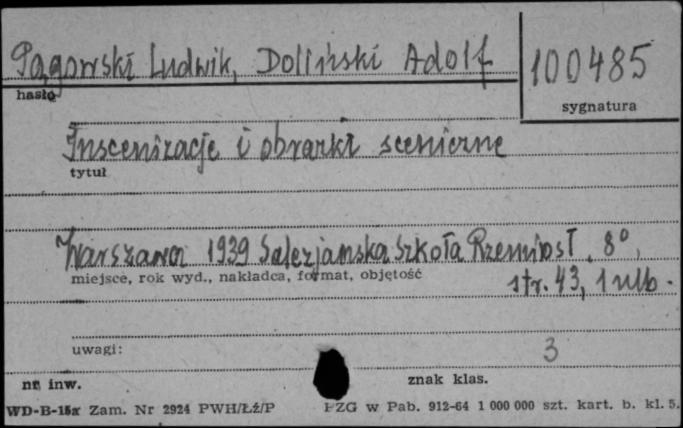 Pągowski Ludwik, Doliński Adolf
100485
hasło
sygnatura
Inscenizacje i obrazki sceniczne
tytuł
Warszawa 1939 Salezjańska Szkoła Rzemiosł. 8°,
miejsce, rok wyd., nakładca, format, objętość
str. 43, 1 nlb.
uwagi:
3
nr. inw.
znak klas.
WD-B-15x Zam. Nr 2924 PWH/Łź/P
PZG w Pab. 912-64 1 000 000 szt. kart. b. kl. 5.